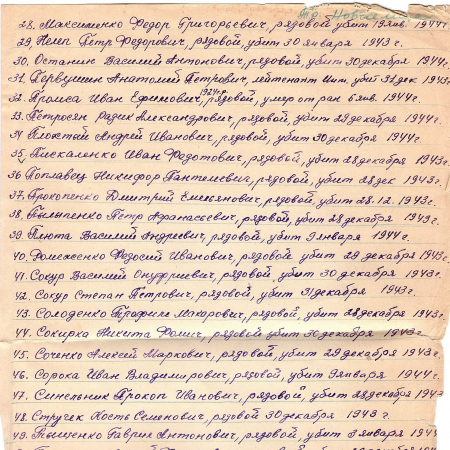 28. Максименко Федор Григорьевич, рядовой убит 19 янв. 1944г
29. Немп Петр Федорович, рядовой, убит 30 января 1943 г.
30. Останин Василий Антонович, рядовой, убит 30 декабря 1944г.
31. Первушин Анатолий Петрович, лейтенант убит 31 дек 1943г.
32. Происа Иван Ефимович, рядовой, умер от ран 6 янв. 1944г.
33. Петросян Радик Александрович, рядовой, убит 29 декабря 1944г.
34 Плоский Андрей Иванович, рядовой, убит 30 декабря 1944г.
35. Пискаленко Иван Федотович, рядовой, убит 28 декабря 1943г.
36 Поплавец Никифор Пантелевич, рядовой, убит 28 дек 1943г.
37. Прокопенко Дмитрий Емельянович, рядовой, убит 28.12. 1943г.
38. Пилипенко Петр Афанасьевич, рядовой, убит 28 декабря 1943г.
39. Плюта Василий Андреевич, рядовой, убит 9 января 1944г.
40. Феодосий Иванович, рядовой, убит 29 декабря 1943г.
41. Сокур Василий Онуфриевич, рядовой, убит 30 декабря 1943г.
42. Сокур Степан Петрович, рядовой, убит 31 декабря 1943г.
43. Солоденко Трофим Макарович, рядовой, убит 28 декабря 1943г.
44. Сокирка Никита Фомич, рядовой убит 30 декабря 1943г.
45. Соченко Алексей Маркович, рядовой, убит 29 декабря 1943г.
46. Сорока Иван Владимирович, рядовой, убит 9 января 1944 г.
47. Синельник Прокоп Иванович, рядовой, убит 28 декабря 1943
48. Стручек Кость Семенович, рядовой 30 декабря 1943 г.
49. Тыщенко Гаврил Антонович, рядовой, убит 3 января 1944г